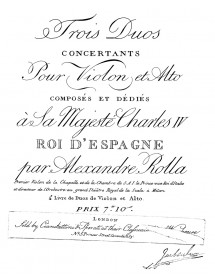 Trois Duos
CONCERTANTS
Pour Violon et Alto
COMPOSÉS ET DÉDIÉS
à Sa Majesté Charles IV
ROI D'ESPAGNE
par Alexandre Rolla
Premier Violon de la Chapelle et de la Chambre de S.A.I. le Prince
et directeur de l'Orchestre au grand Théatre Royal de la Scala, à Milan.
Livre de Duos de Violon et Alto.
PRIX 7.10
LONDON
Sold by